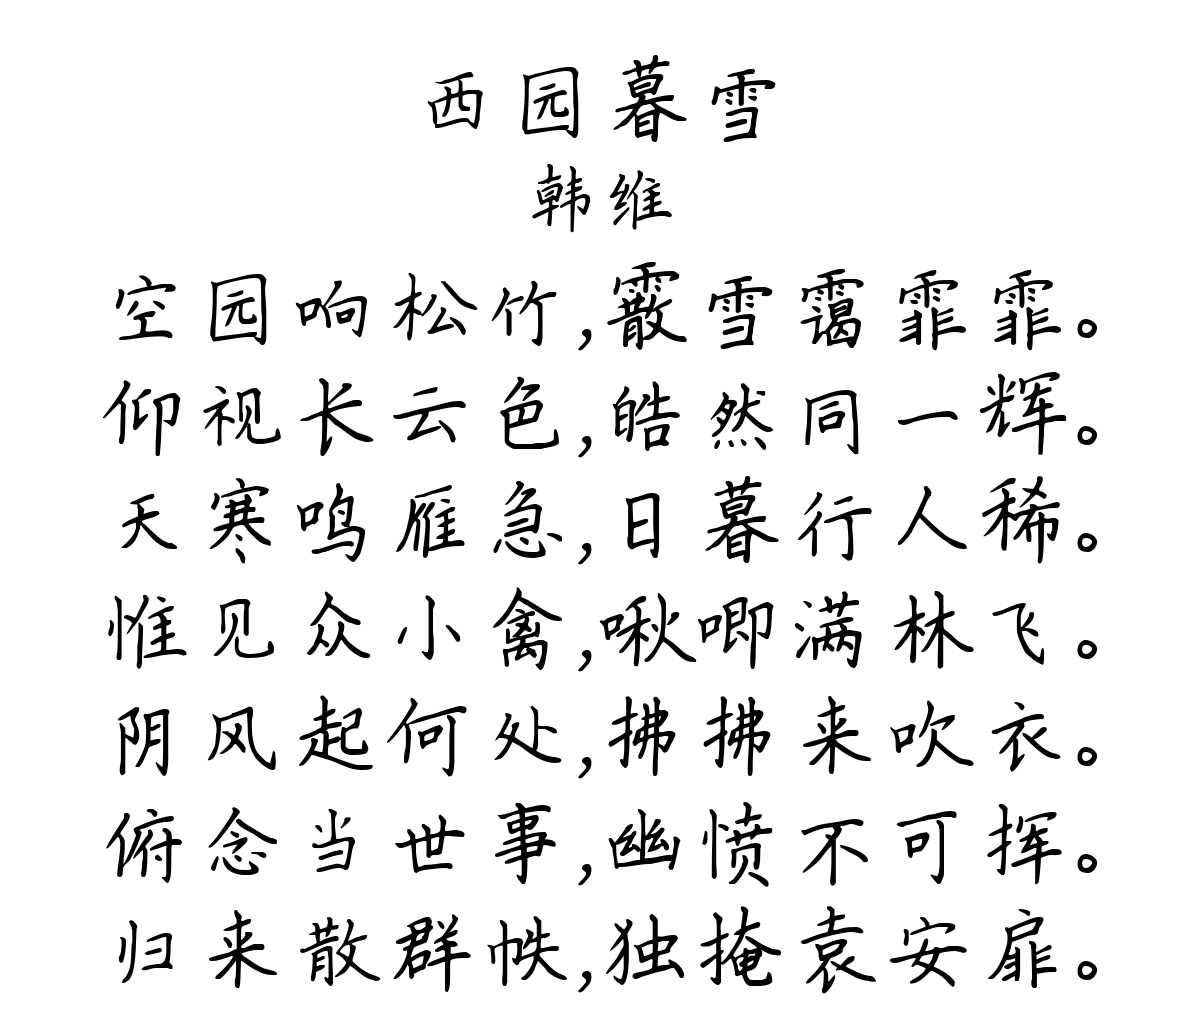 西园暮雪
韩维
空园响松竹,霰雪霭霏霏。
仰视长云色,皓然同一辉。
天寒鸣雁急,日暮行人稀。
惟见众小禽,啾唧满林飞。
阴风起何处,拂拂来吹衣。
俯念当世事,幽愤不可挥。
归来散群帙,独掩袁安扉。